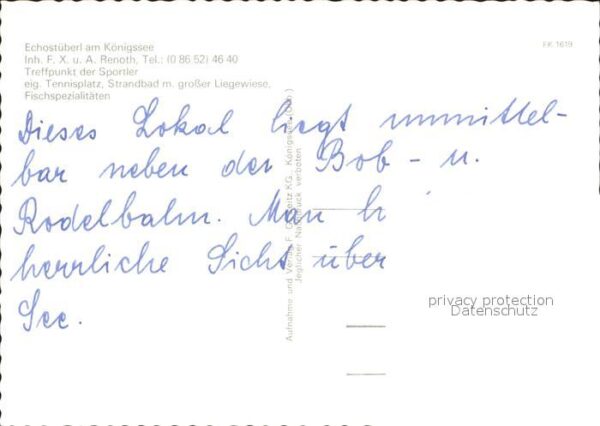 Echostüberl am Königssee
Inh. F. X. u. A. Renoth, Tel.: (0 86 52) 46 40
Treffpunkt der Sportler
eig. Tennisplatz, Strandbad m. großer Liegewiese,
Fischspezialitäten
FK 1619
Dieses Lokal liegt unmittel-
bar neben der Bob- u.
Rodelbahn. Man h
herrliche Sicht über
See.
Aufnahme und Verlag F. KG, Königssee
Jeglicher Nachdruck verboten
privacy protection
Datenschutz